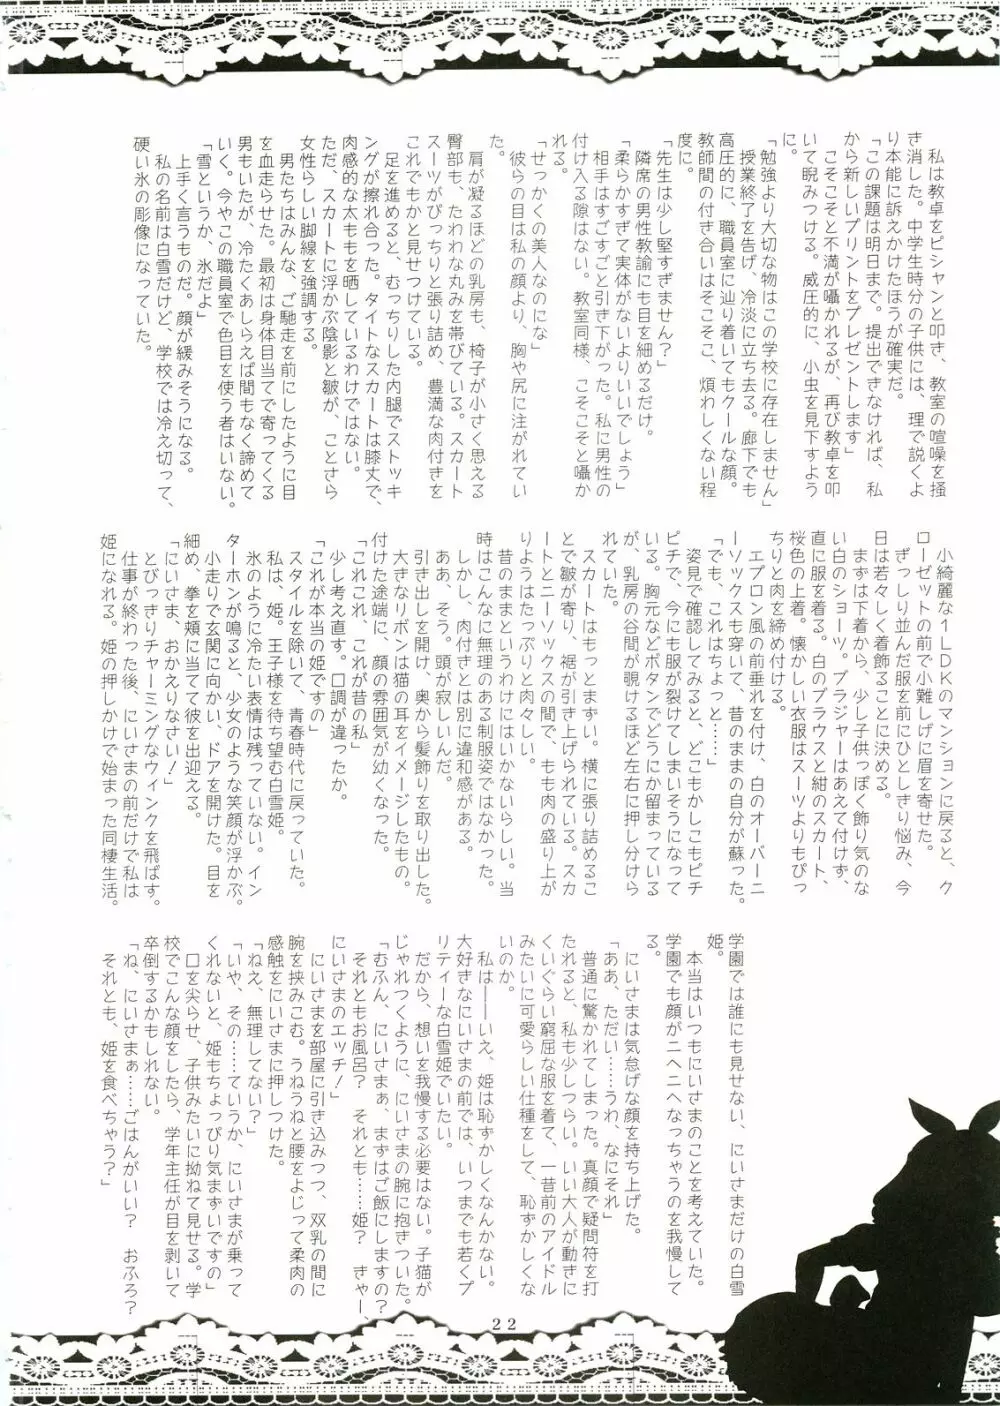 私は教卓をピシャンと叩き、教室の喧噪を掻
き消した。中学生時分の子供には、理で説くよ
り本能に訴えかけたほうが確実だ。
「この課題は明日まで。提出できなければ、私
から新しいプリントをプレゼントします」
　こそこそと不満が囁かれるが、再び教卓を叩
いて睨みつける。威圧的に、小虫を見下すよう
に。
「勉強より大切な物はこの学校に存在しません」
　授業終了を告げ、冷淡に立ち去る。廊下でも
高圧的に、職員室に辿り着いてもクールな顔。
教師間の付き合いはそこそこ、煩わしくない程
度に。
「先生は少し堅すぎません？」
　隣席の男性教諭にも目を細めるだけ。
「柔らかすぎて実体がないよりいいでしょう」
　相手はすごすごと引き下がった。私に男性の
付け入る隙はない。教室同様、こそこそと囁か
れる。
「せっかくの美人なのにな」
　彼らの目は私の顔より、胸や尻に注がれてい
た。
　肩が凝るほどの乳房も、椅子が小さく思える
臀部も、たわわな丸みを帯びている。スカート
スーツがぴっちりと張り詰め、豊満な肉付きを
これでもかと見せつけている。
　足を進めると、むっちりした内腿でストッキ
ングが擦れ合った。タイトなスカートは膝丈で、
肉感的な太ももを晒しているわけではない。
ただ、スカートに浮かぶ陰影と皺が、ことさら
女性らしい脚線を強調する。
　男たちはみんな、ご馳走を前にしたように目
を血走らせた。最初は身体目当てで寄ってくる
男もいたが、冷たくあしらえば間もなく諦めて
いく。今やこの職員室で色目を使う者はいない。
「雪というか、氷だよ」
　上手く言うものだ。顔が緩みそうになる。
　私の名前は白雪だけど、学校では冷え切って、
硬い氷の彫像になっていた。
　小綺麗な１ＬＤＫのマンションに戻ると、ク
ローゼットの前で小難しげに眉を寄せた。
　ぎっしり並んだ服を前にひとしきり悩み、今
日は若々しく着飾ることに決める。
　まずは下着から、少し子供っぽく飾り気のな
い白のショーツ。ブラジャーはあえて付けず、
直に服を着る。白のブラウスと紺のスカート、
桜色の上着。懐かしい衣服はスーツよりもぴっ
ちりと肉を締め付ける。
　エプロン風の前垂れを付け、白のオーバーニ
ーソックスも穿いて、昔のままの自分が蘇った。
「でも、これはちょっと……」
　姿見で確認してみると、どこもかしこもピチ
ピチで、今にも服が裂けてしまいそうになって
いる。胸元などボタンでどうにか留まっている
が、乳房の谷間が覗けるほど左右に押し分けら
れていた。
　スカートはもっとまずい。横に張り詰めるこ
とで皺が寄り、裾が引き上げられている。スカ
ートとニーソックスの間で、もも肉の盛り上が
りようはたっぷりと肉々しい。
　昔のままというわけにはいかないらしい。当
時はこんなに無理のある制服姿ではなかった。
　しかし、肉付きとは別に違和感がある。
　ああ、そう。頭が寂しいんだ。
　引き出しを開け、奥から髪飾りを取り出した。
　大きなリボンは猫の耳をイメージしたもの。
付けた途端に、顔の雰囲気が幼くなった。
「これこれ、これが昔の私」
　少し考え直す。口調が違ったか。
「これが本当の姫ですの」
　スタイルを除いて、青春時代に戻っていた。
　私は、姫。王子様を待ち望む白雪姫。
　氷のように冷たい表情は残っていない。イン
ターホンが鳴ると、少女のような笑顔が浮かぶ。
　小走りで玄関に向かい、ドアを開けた。目を
細め、拳を頬に当てて彼を出迎える。
「にいさま、おかえりなさい！」
　とびっきりチャーミングなウィンクを飛ばす。
　仕事が終わった後、にいさまの前だけで私は
姫になれる。姫の押しかけで始まった同棲生活。
学園では誰にも見せない、にいさまだけの白雪
姫。
　本当はいつもにいさまのことを考えていた。
学園でも顔がニヘニヘなっちゃうのを我慢して
る。
　にいさまは気怠げな顔を持ち上げた。
「ああ、ただい……うわ、なにそれ」
　普通に驚かれてしまった。真顔で疑問符を打
たれると、私も少しつらい。いい大人が動きに
くいぐらい窮屈な服を着て、一昔前のアイドル
みたいに可愛らしい仕種をして、恥ずかしくな
いのか。
　私は――いえ、姫は恥ずかしくなんかない。
大好きなにいさまの前では、いつまでも若くプ
リティーな白雪姫でいたい。
　だから、想いを我慢する必要はない。子猫が
じゃれつくように、にいさまの腕に抱きついた。
「むふん、にいさまぁ、まずはご飯にしますの？
　それともお風呂？　それとも……姫？　きゃー、
にいさまのエッチ！」
　にいさまを部屋に引き込みつつ、双乳の間に
腕を挟みこむ。うねうねと腰をよじって柔肉の
感触をにいさまに押しつけた。
「ねえ、無理してない？」
「いや、その……ていうか、にいさまが乗って
くれないと、姫もちょっぴり気まずいですの」
　口を尖らせ、子供みたいに拗ねて見せる。学
校でこんな顔をしたら、学年主任が目を剥いて
卒倒するかもしれない。
「ね、にいさまぁ……ごはんがいい？　おふろ？
　それとも、姫を食べちゃう？」
２２